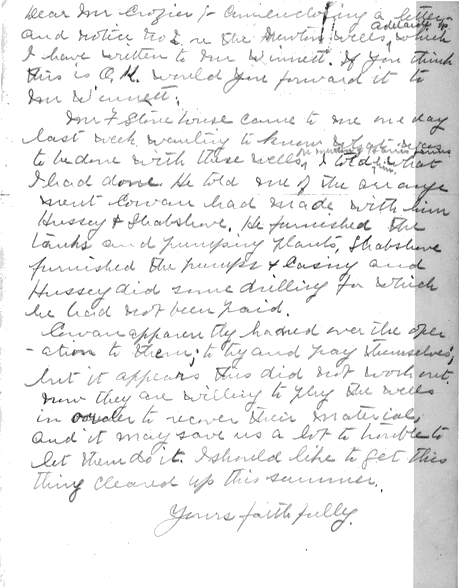 Dear Mr Crozier :- Am enclosing a letter
and notice No 2 on the Newton Wells, which
I have written to Mr Winnett. If you think
this is O.K. would you forward it to
Mr Winnett.
Mr F Stonehouse came to me one day
last week wanting to know what was
to be done with these wells, I told him what
I had done. He told me of the arrange
ment Cowan had made with him
Hussey & Shabshove. He furnished the
tanks and pumping plants, Shabshove
furnished the pumps & Casing and
Hussey did some drilling for which
he had not been paid.
Cowan apparently handed over the oper
-ation to them, to try and pay themselves,
but it appears this did not work out.
now they are willing to plug the wells
in order to recover their material,
and it may save us a lot to trouble to
let them do it. I should like to get this
thing cleared up this summer.
Yours faithfully.